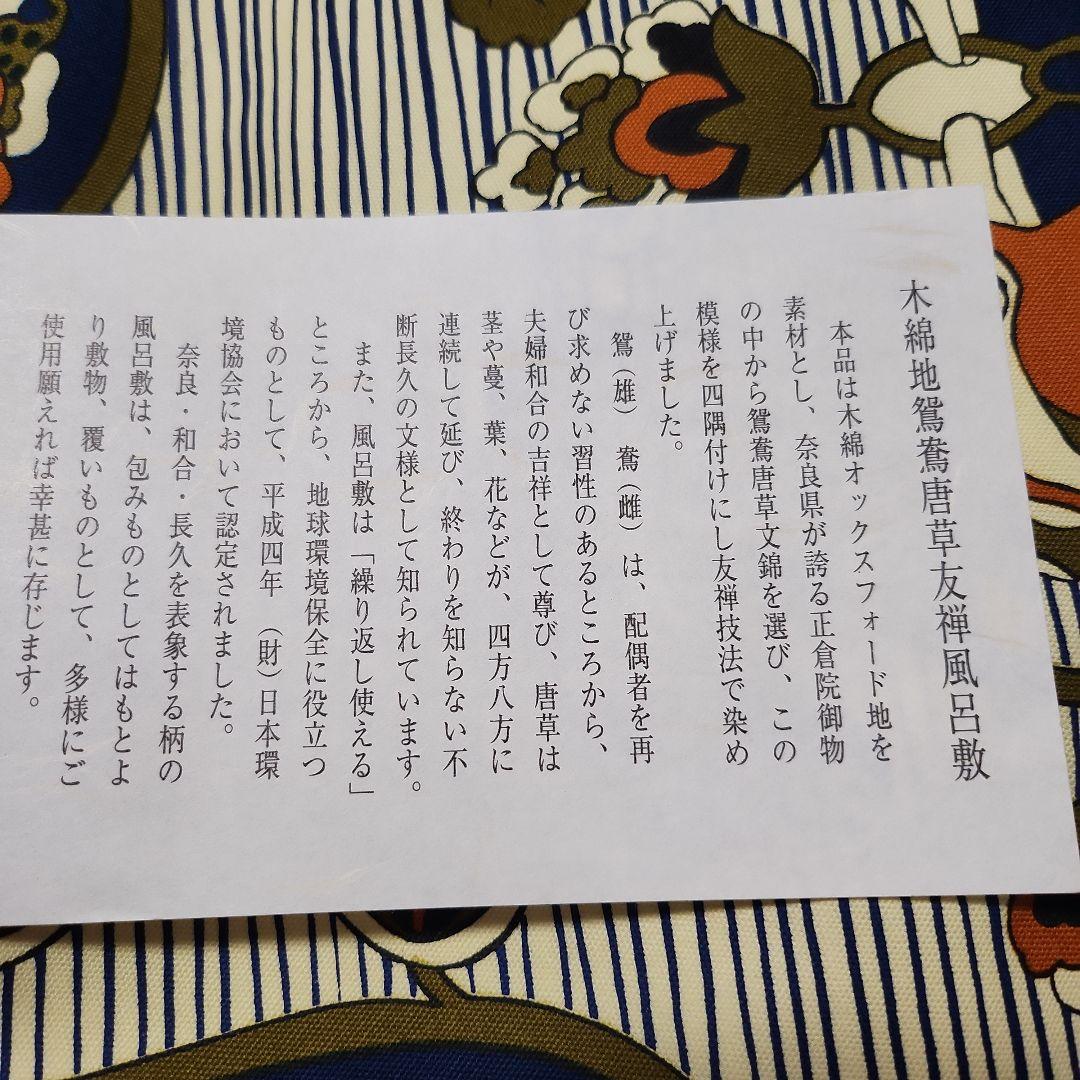 木綿地鴛鴦唐草友禅風呂敷
本品は木綿オックスフォード地を
素材とし、奈良県が誇る正倉院御物
の中から鴛鴦唐草文錦を選び、この
模様を四隅付けにし友禅技法で染め
上げました。
鴛(雄) 鴦(雌) は、配偶者を再
び求めない習性のあるところから、
夫婦和合の吉祥として尊び、唐草は
茎や蔓、葉、花などが、四方八方に
連続して延び、終わりを知らない不
断長久の文様として知られています。
また、風呂敷は「繰り返し使える」
ところから、地球環境保全に役立つ
ものとして、平成四年 (財)日本環
境協会において認定されました。
奈良・和合・長久を表象する柄の
風呂敷は、包みものとしてはもとよ
り敷物、覆いものとして、多様にご
使用願えれば幸甚に存じます。